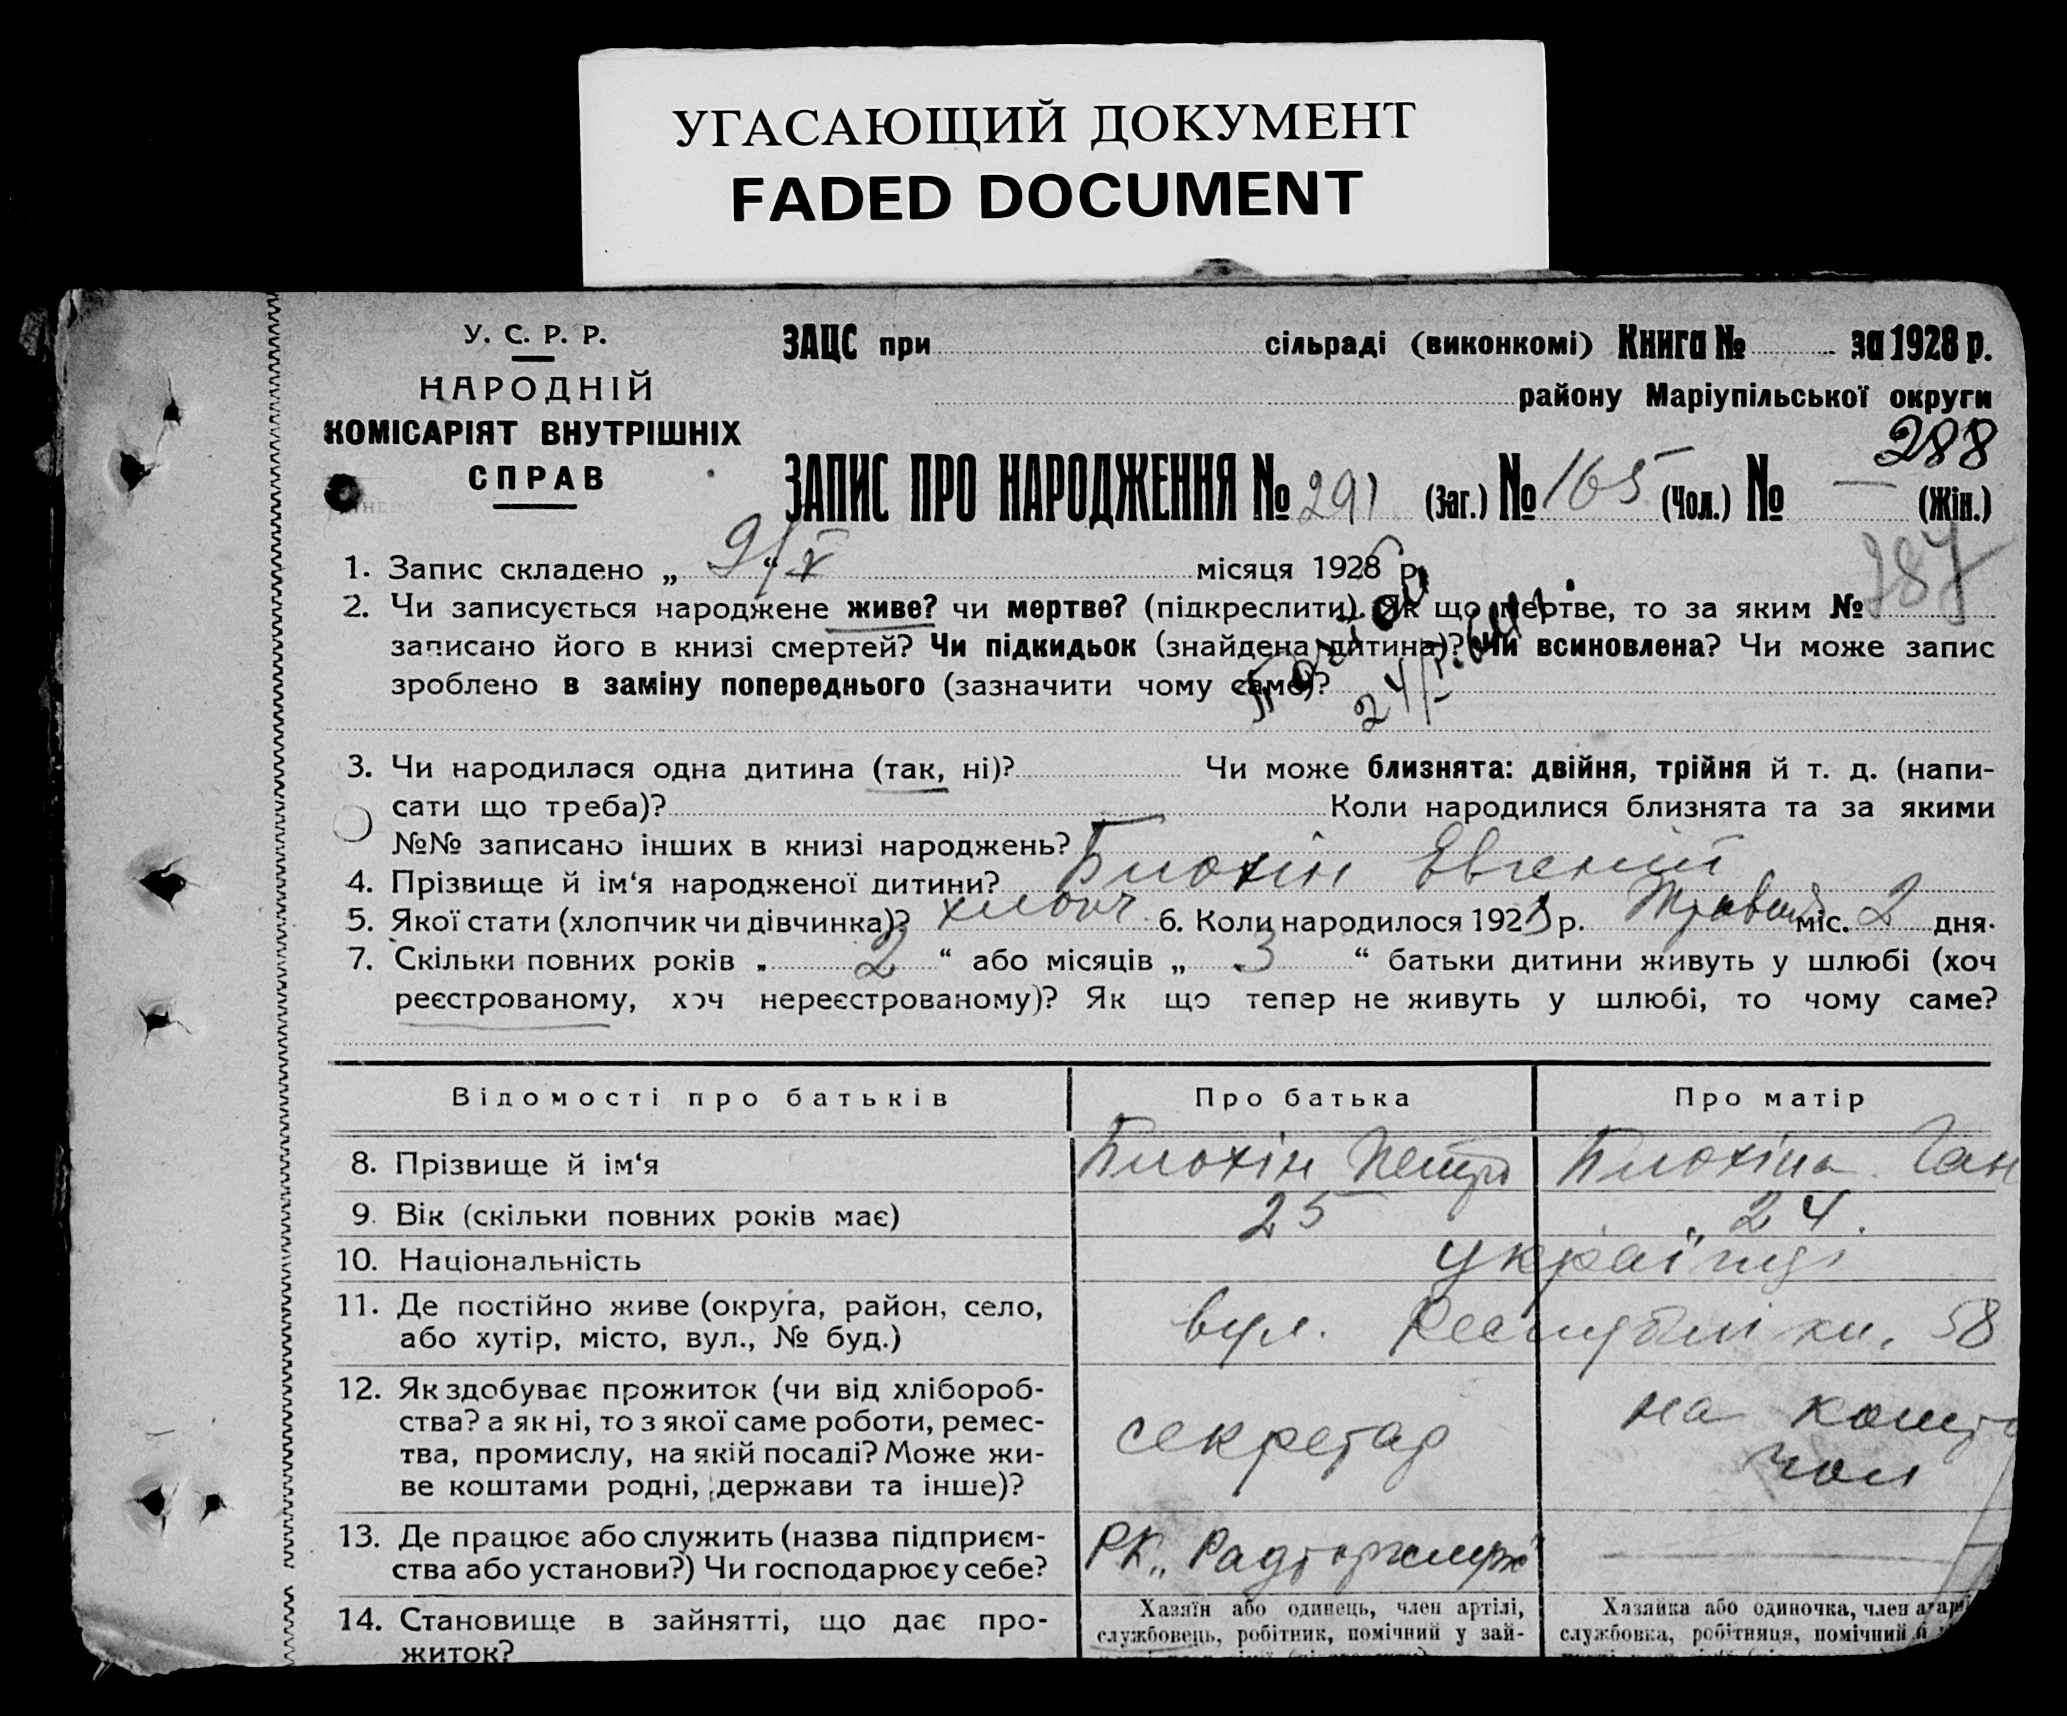 УГАСАЮЩИЙ ДОКУМЕНТ
FADED DOCUMENT
У. С. Р. Р.
НАРОДНІЙ
КОМІСАРІЯТ ВНУТРІШНІХ
СПРАВ
ЗАЦС при сільраді (виконкомі) Книга № за 1928 р.
району Маріупільської округи
288
ЗАПИС ПРО НАРОДЖЕННЯ № 291 (Заг.) № 165 (Чол.) № — (Жін.)
287
1. Запис складено „ 9/X “ місяця 1928 р.
2. Чи записується народжене живе? чи мертве? (підкреслити). Як що мертве, то за яким №
записано його в книзі смертей? Чи підкидьок (знайдена дитина)? Чи всиновлена? Чи може запис
зроблено в заміну попереднього (зазначити чому саме)?
3. Чи народилася одна дитина (так, ні)? Чи може близнята: двійня, трійня й т. д. (напи-
сати що треба)? Коли народилися близнята та за якими
№№ записано інших в книзі народжень?
4. Прізвище й ім‘я народженої дитини? Блохін Евгеній
5. Якої стати (хлопчик чи дівчинка)? хлопч 6. Коли народилося 1928 р. Травня міс. 2 дня.
7. Скільки повних років „ 2 “ або місяців „ 3 “ батьки дитини живуть у шлюбі (хоч
реєстрованому, хоч нереєстрованому)? Як що тепер не живуть у шлюбі, то чому саме?
Відомості про батьків Про батька Про матір
8. Прізвище й ім‘я Блохін Петро Блохіна Ган
9. Вік (скільки повних років має) 25 24.
10. Національність українці
11. Де постійно живе (округа, район, село, вул. Республіки, 58
або хутір, місто, вул., № буд.)
12. Як здобуває прожиток (чи від хлібороб- на кошт
ства? а як ні, то з якої саме роботи, ремес- секретар
тва, промислу, на якій посаді? Може жи- чол
ве коштами родні, держави та інше)?
13. Де працює або служить (назва підприєм- РК „Радторгслуж“
ства або установи?) Чи господарює у себе?
14. Становище в зайнятті, що дає про- Хазяїн або одинець, член артілі, Хазяйка або одиночка, член арті
житок? службовець, робітник, помічний у зай- службовка, робітниця, помічний